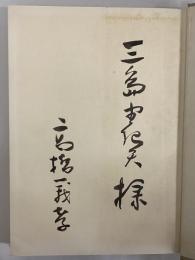 三島由紀夫様
高橋義孝